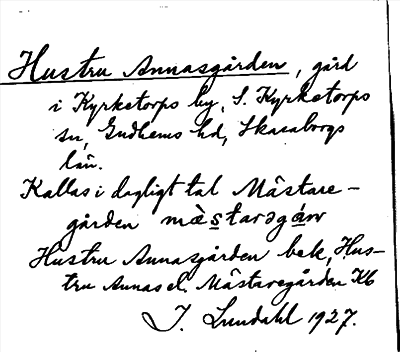 Hustru Annasgården, gård
i Kyrketorps by, S. Kyrketorps
sn, Gudhems hd, Skaraborgs
län.
Kallas i dagligt tal Mästare-
gården mä̀starəgáɷ
Hustru Annasgården bek, Hus-
tru Annas el. Mästaregården Kb
I. Lundahl 1927.